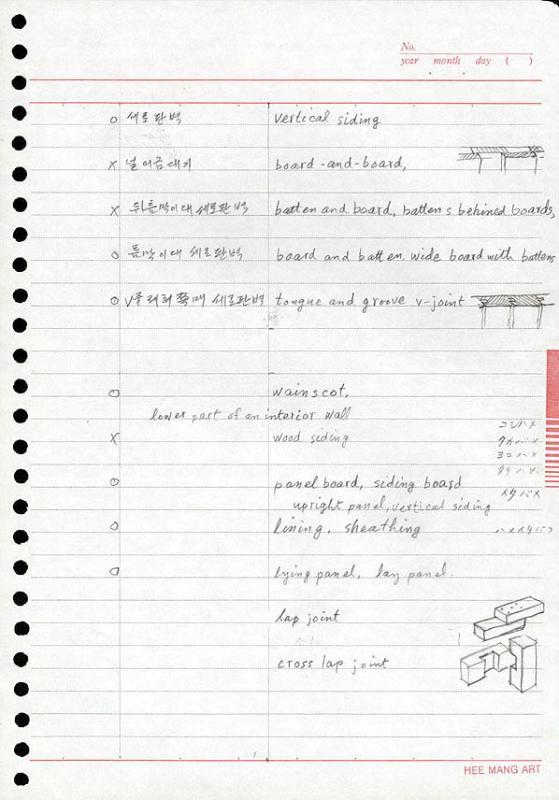 No.
year month day ( )
o 세로판벽 vertical siding
x 널이음대기 board-and-board,
x 뒤틈막이대 세로판벽 batten and board, battens behined boards,
o 틈막이대 세로판벽 board and batten. wide board with battens
o V홈 세로판벽 tongue and groove v-joint
o wainscot,
lower part of an interior wall
コシバメ
x wood siding
タカバメ
ヨコハメ
タテハメ
o panel board, siding board
イタバメ
upright panel, vertical siding
o lining, sheathing
o lying panel, lay panel.
lap joint
cross lap joint
HEE MANG ART